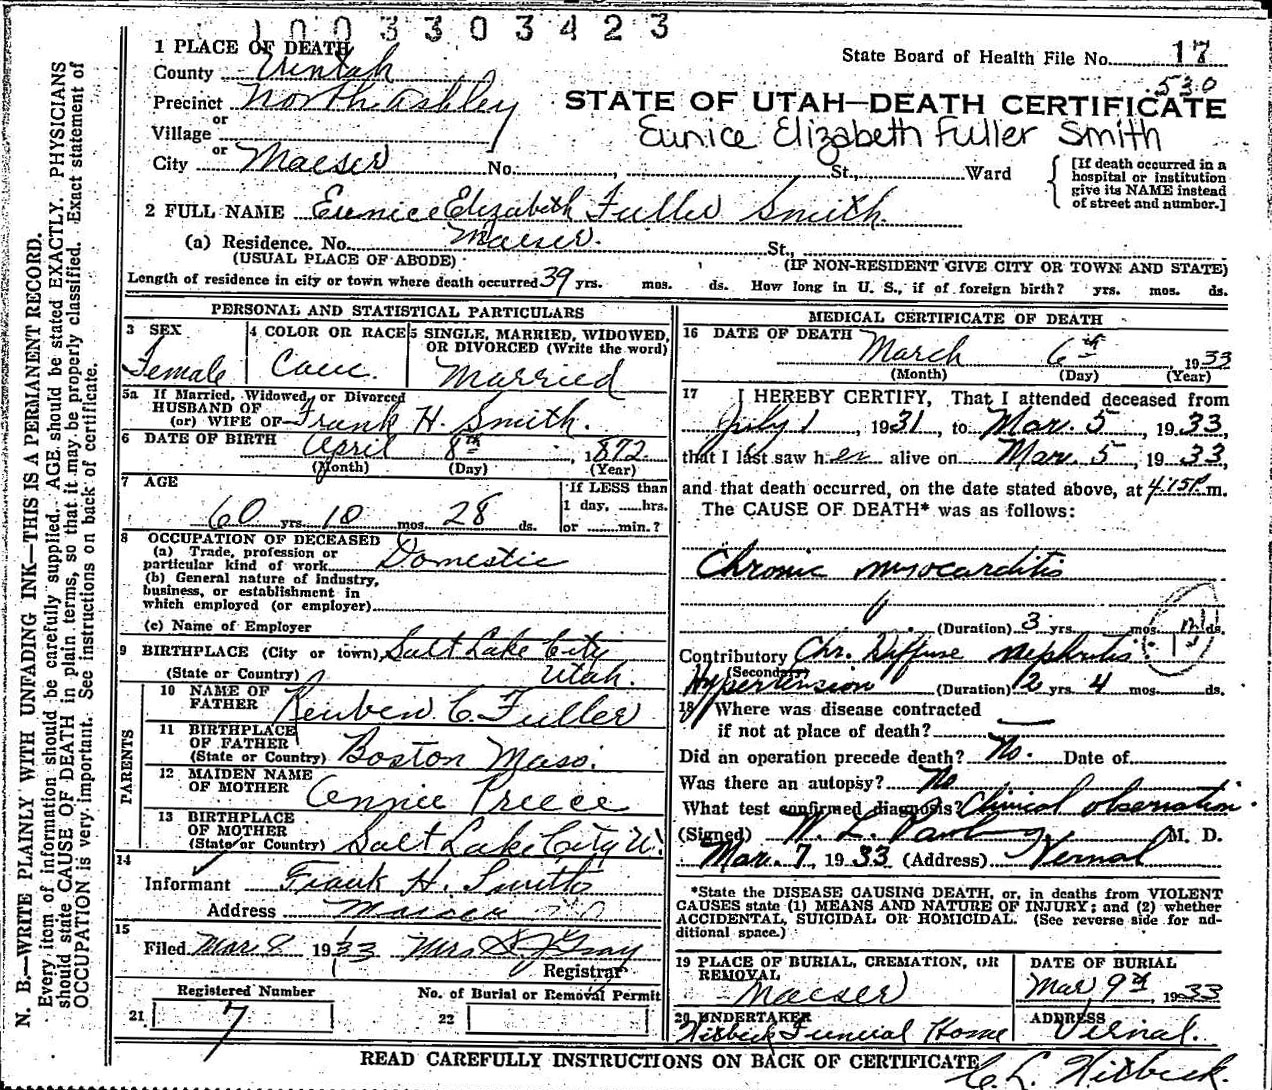 1003303423
1 PLACE OF DEATH
County Uintah
State Board of Health File No. 17
530
Precinct North Ashley
or
STATE OF UTAH—DEATH CERTIFICATE
Village
Eunice Elizabeth Fuller Smith
or
City Maeser No. , St., Ward
[If death occurred in a
hospital or institution
give its NAME instead
of street and number.]
2 FULL NAME Eunice Elizabeth Fuller Smith.
(a) Residence. No. Maeser. St.,
(USUAL PLACE OF ABODE)
(IF NON-RESIDENT GIVE CITY OR TOWN AND STATE)
Length of residence in city or town where death occurred 39 yrs. mos. ds. How long in U. S., if of foreign birth? yrs. mos. ds.
PERSONAL AND STATISTICAL PARTICULARS
3 SEX
Female
4 COLOR OR RACE
Cauc.
5 SINGLE, MARRIED, WIDOWED,
OR DIVORCED (Write the word)
Married
5a If Married, Widowed, or Divorced
HUSBAND OF
(or) WIFE OF Frank H. Smith.
6 DATE OF BIRTH April 8th, 1872.
(Month) (Day) (Year)
7 AGE
60 yrs. 10 mos. 28 ds.
If LESS than
1 day, hrs.
or min.?
8 OCCUPATION OF DECEASED
(a) Trade, profession or
particular kind of work Domestic
(b) General nature of industry,
business, or establishment in
which employed (or employer)
(c) Name of Employer
9 BIRTHPLACE (City or town) Salt Lake City
(State or Country) Utah.
PARENTS
10 NAME OF
FATHER Reuben C. Fuller
11 BIRTHPLACE
OF FATHER
(State or Country) Boston Mass.
12 MAIDEN NAME
OF MOTHER Annie Preece
13 BIRTHPLACE
OF MOTHER
(State or Country) Salt Lake City U.
14
Informant Frank H. Smith
Address Maeser
15
Filed Mar 8 1933 Mrs S J Gray
Registrar
Registered Number
21 7
No. of Burial or Removal Permit
22
MEDICAL CERTIFICATE OF DEATH
16 DATE OF DEATH
March 6th 1933
(Month) (Day) (Year)
17 I HEREBY CERTIFY, That I attended deceased from
July 1, 1931, to Mar. 5, 1933,
that I last saw her alive on Mar. 5, 1933,
and that death occurred, on the date stated above, at 4:15P m.
The CAUSE OF DEATH* was as follows:
Chronic myocarditis
(Duration) 3 yrs. mos. ds.
Contributory Chr. Diffuse nephritis
(Secondary)
Hypertension (Duration) 2 yrs. 4 mos. ds.
18 Where was disease contracted
if not at place of death?
Did an operation precede death? No. Date of
Was there an autopsy? No
What test confirmed diagnosis? Clinical observation.
(Signed) M. D.
Mar. 7, 1933 (Address) Vernal
*State the DISEASE CAUSING DEATH, or, in deaths from VIOLENT
CAUSES state (1) MEANS AND NATURE OF INJURY; and (2) whether
ACCIDENTAL, SUICIDAL OR HOMICIDAL. (See reverse side for ad-
ditional space.)
19 PLACE OF BURIAL, CREMATION, OR
REMOVAL
Maeser
DATE OF BURIAL
Mar 9th, 1933
20 UNDERTAKER
Hisbeck Funeral Home
ADDRESS
Vernal.
READ CAREFULLY INSTRUCTIONS ON BACK OF CERTIFICATE
C. L. Hisbeck.
N. B.—WRITE PLAINLY WITH UNFADING INK—THIS IS A PERMANENT RECORD.
Every item of information should be carefully supplied. AGE should be stated EXACTLY. PHYSICIANS
should state CAUSE OF DEATH in plain terms, so that it may be properly classified. Exact statement of
OCCUPATION is very important. See instructions on back of certificate.